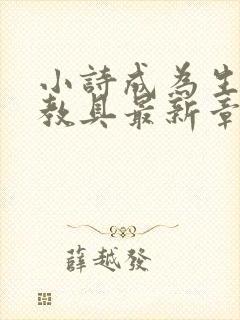 小詩成為生
教具最新章
薛越發